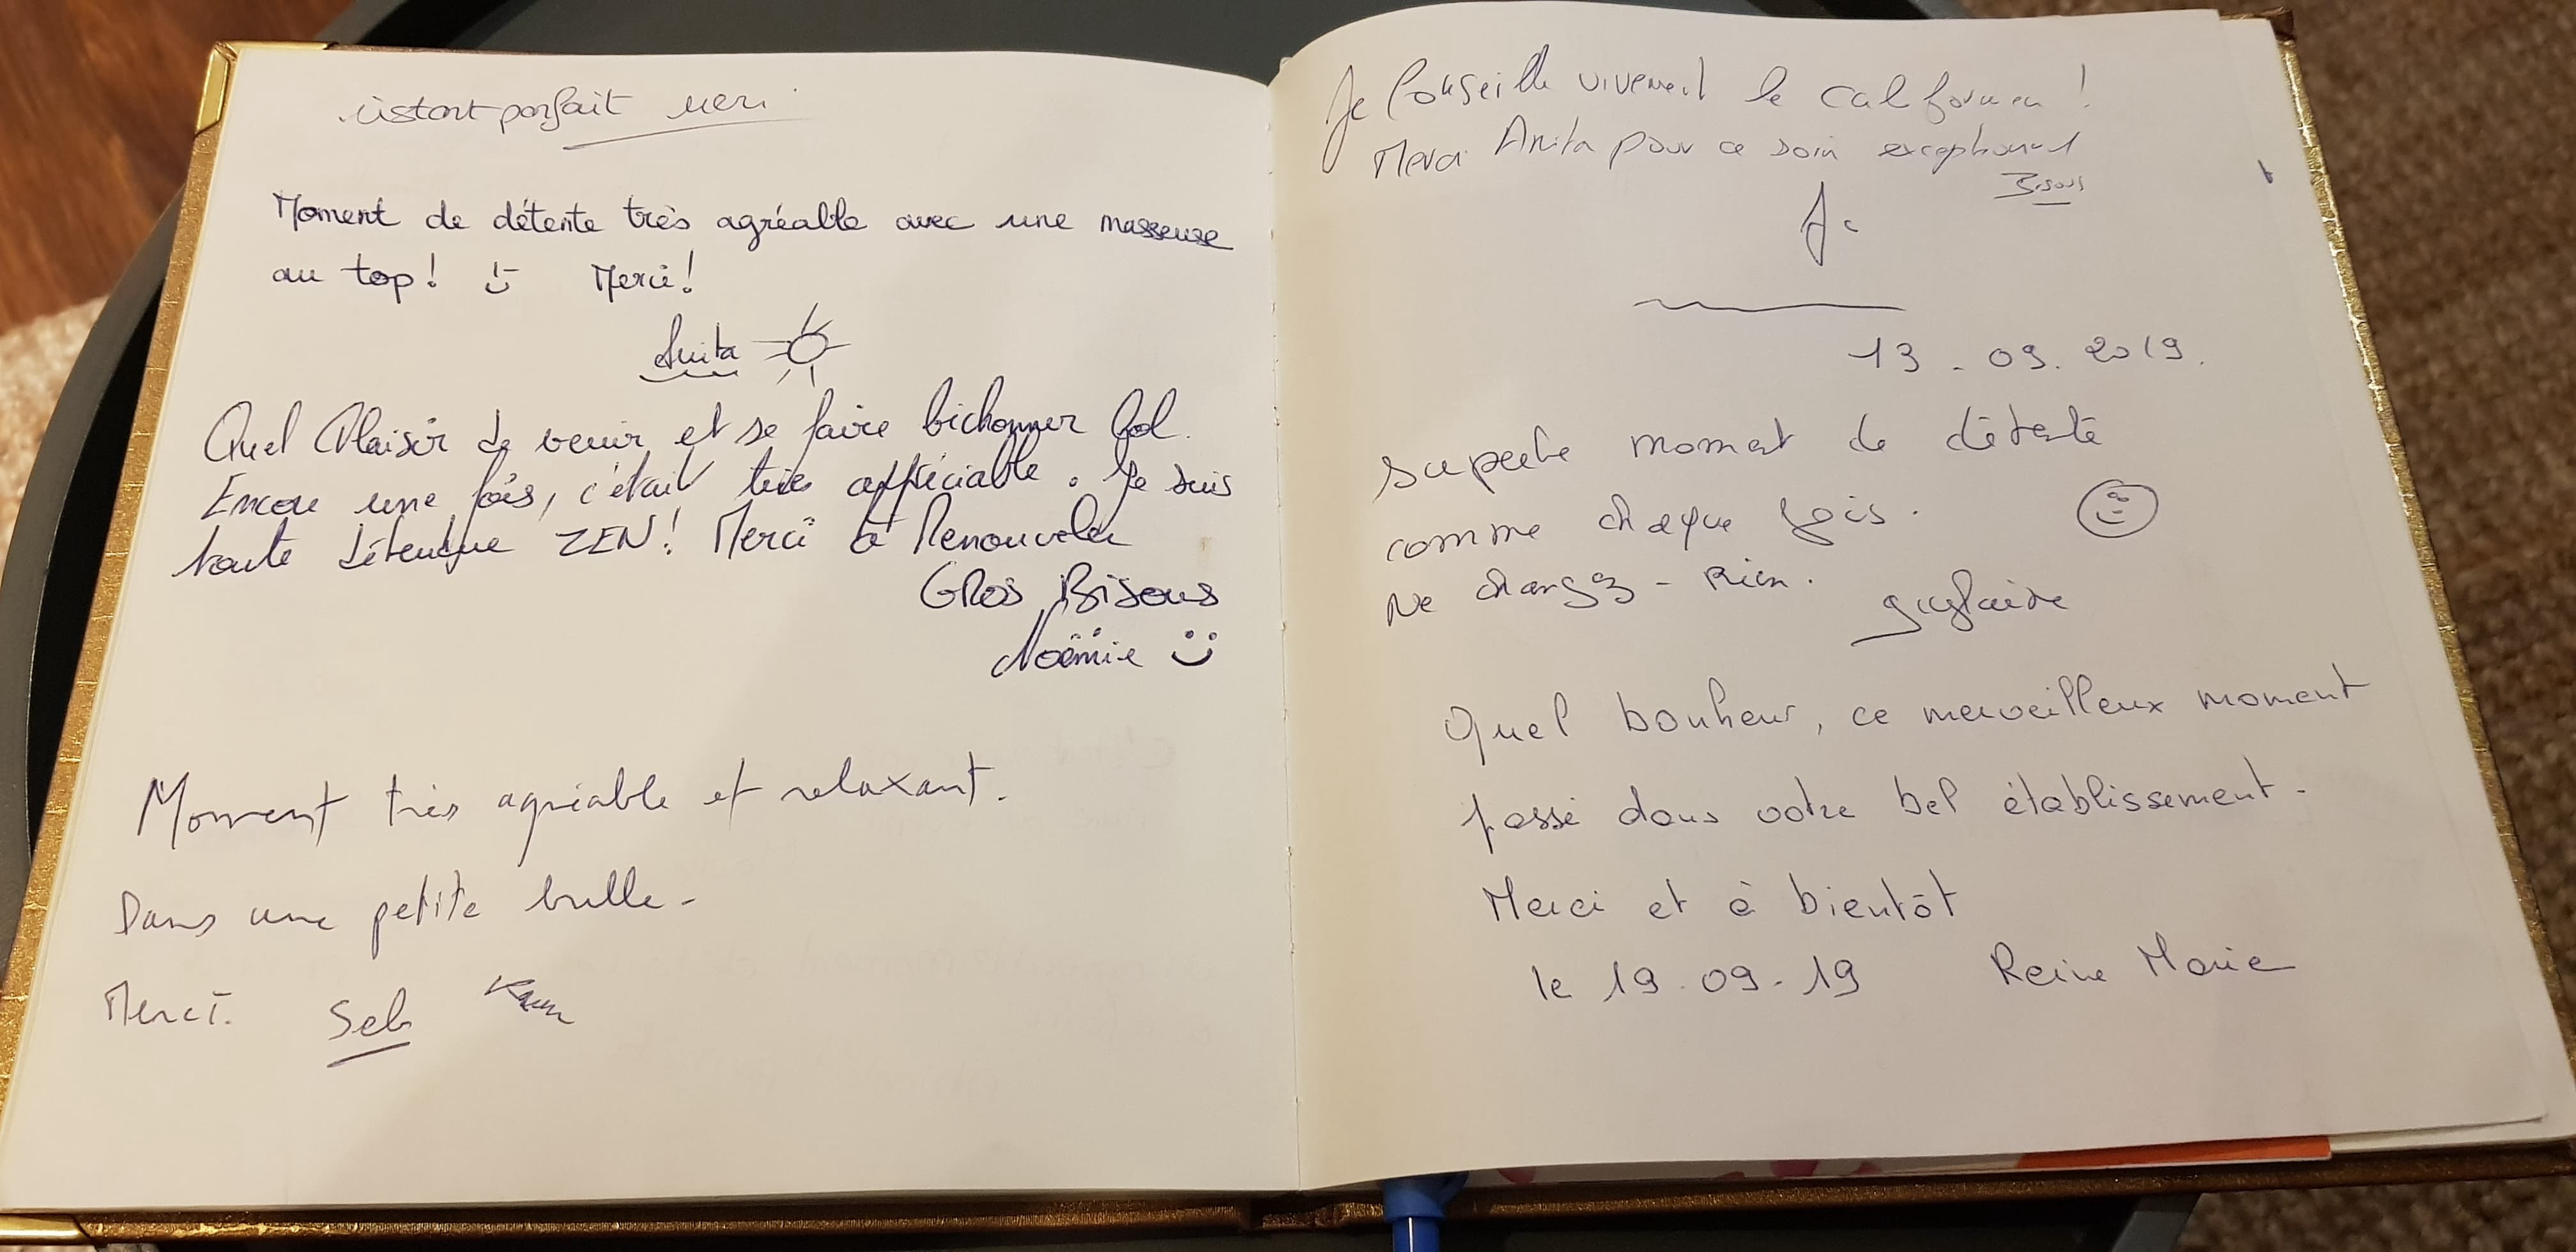 instant parfait merci
Moment de détente très agréable avec une masseuse
au top! Merci!
Anita
Quel Plaisir de venir et se faire bichonner
Encore une fois, c'était très appréciable. Je suis
toute détendue ZEN! Merci à Renouveler
GROS Bisous
Noëmie
Moment très agréable et relaxant.
Dans une petite bulle.
Merci. Seb
Je Conseille vivement le californien!
Merci Anita pour ce soin exceptionnel
Bisous
13.09.2019.
superbe moment de détente
comme chaque fois.
Ne changez-Rien.
Quel bonheur, ce merveilleux moment
passé dans votre bel établissement.
Merci et à bientôt
le 19.09.19 Reine Marie